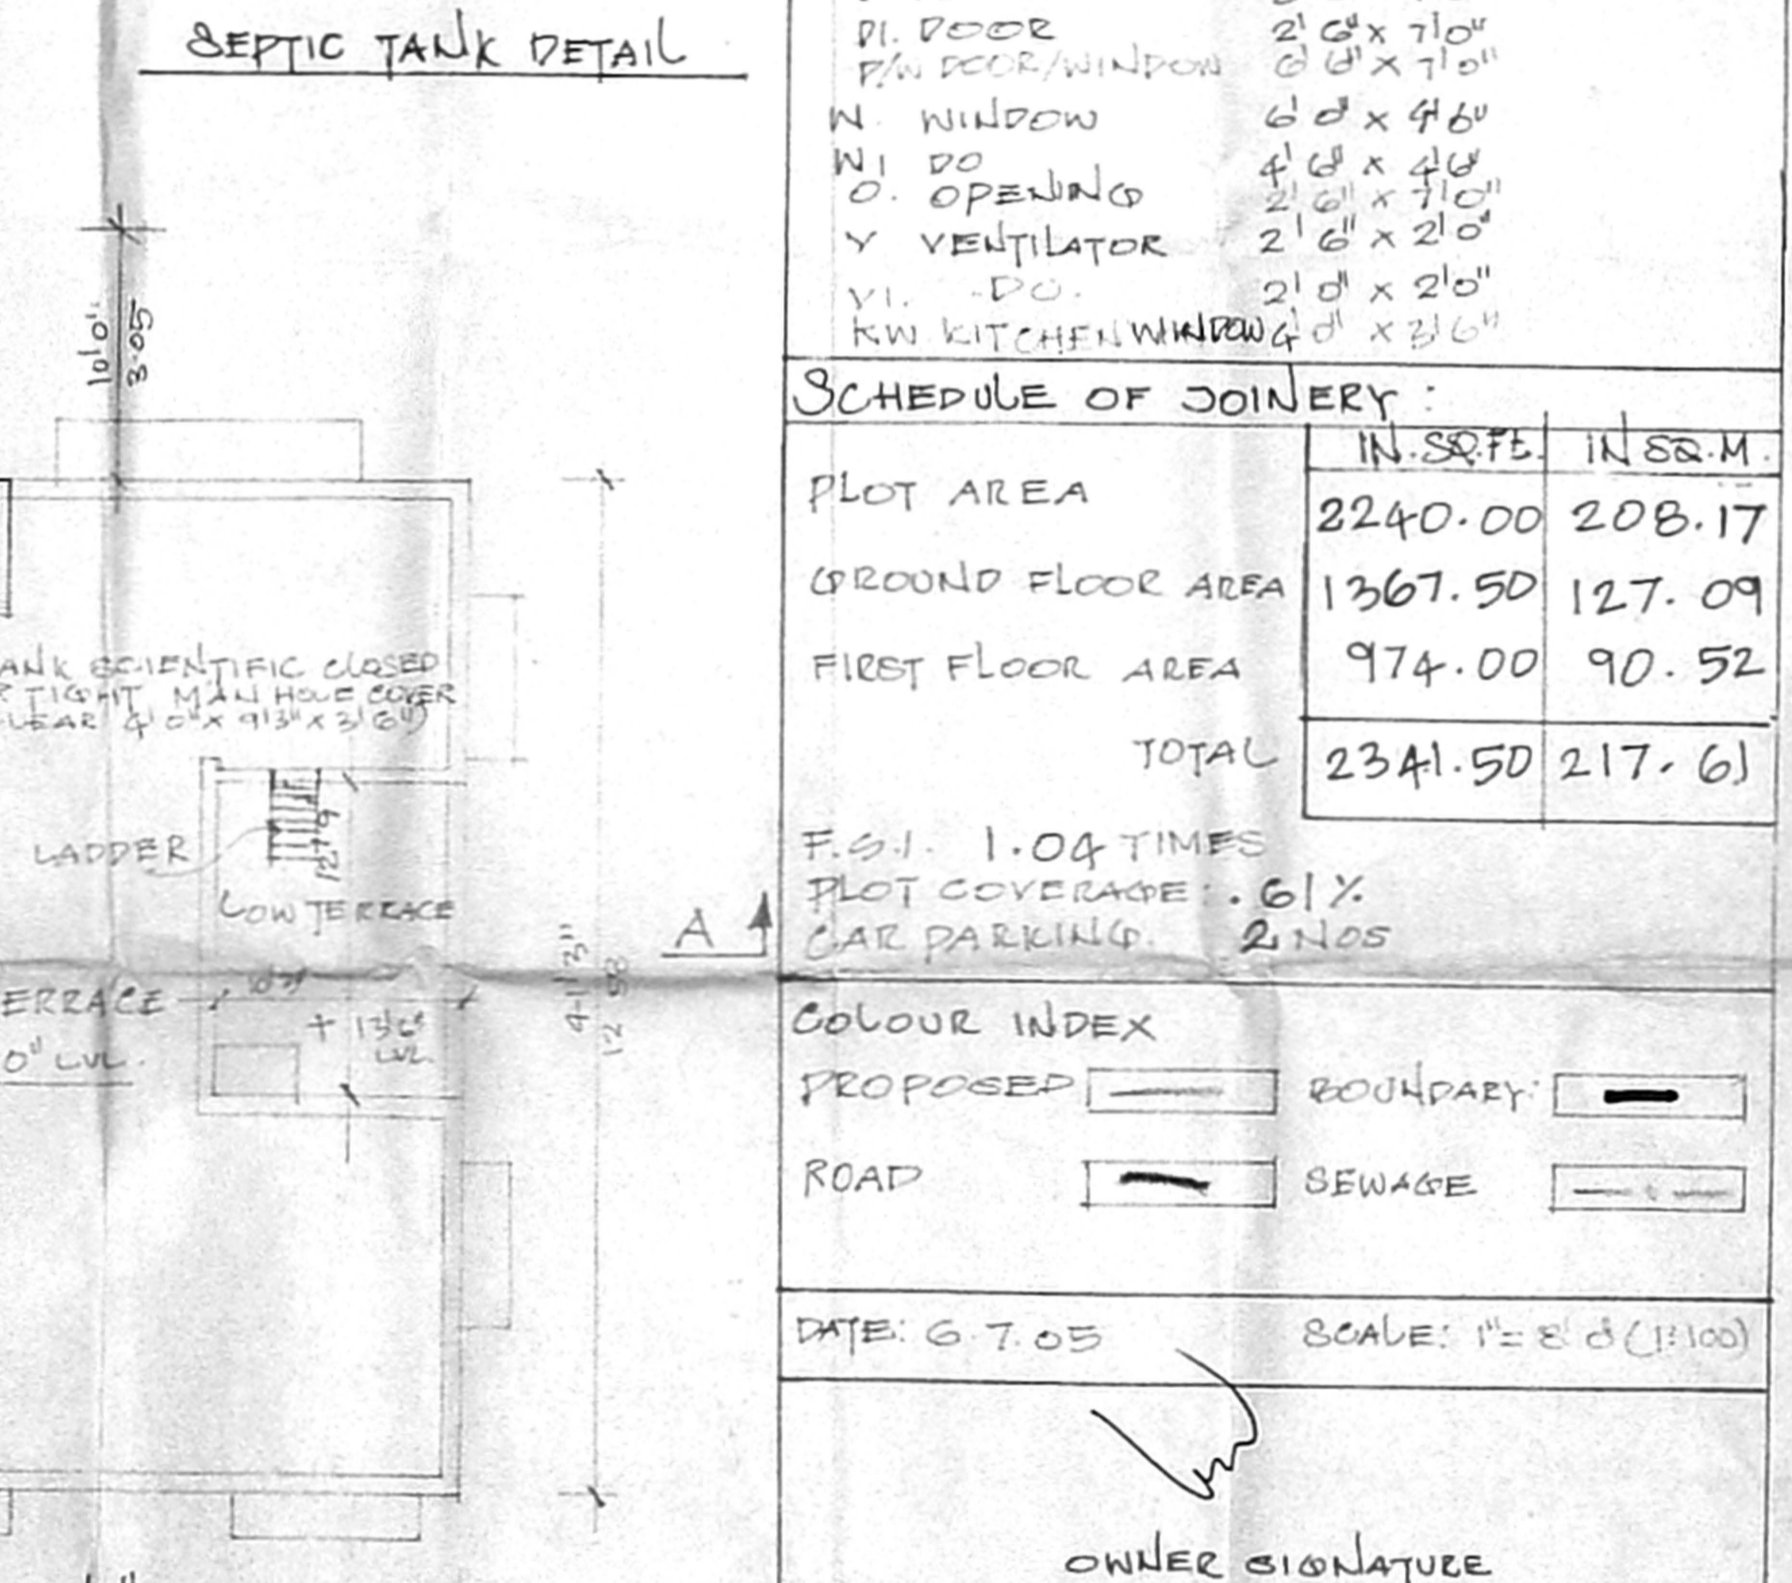 SEPTIC TANK DETAIL
10'0"
3.05
ANK SCIENTIFIC CLOSED
R TIGHT MAN HOLE COVER
LEAR 4'0" X 9'3" X 3'6")
LADDER
12'9
LOW TERRACE
ERRACE
+ 13'6"
LVL.
0" LVL.
A
D1. DOOR 2'6" X 7'0"
D/W DOOR/WINDOW 6'6" X 7'0"
W. WINDOW 6'0" X 4'6"
W1 DO 4'6" X 4'6"
O. OPENING 2'6" X 7'0"
V VENTILATOR 2'6" X 2'0"
V1. -DO. 2'0" X 2'0"
KW KITCHEN WINDOW 4'0" X 3'6"
SCHEDULE OF JOINERY :
IN.SQ.FT. IN SQ.M.
PLOT AREA 2240.00 208.17
GROUND FLOOR AREA 1367.50 127.09
FIRST FLOOR AREA 974.00 90.52
TOTAL 2341.50 217.61
F.S.I. 1.04 TIMES
PLOT COVERAGE: .61%
CAR PARKING. 2 NOS
COLOUR INDEX
PROPOSED BOUNDARY:
ROAD SEWAGE
DATE: 6.7.05 SCALE: 1"= 8'0" (1:100)
OWNER SIGNATURE